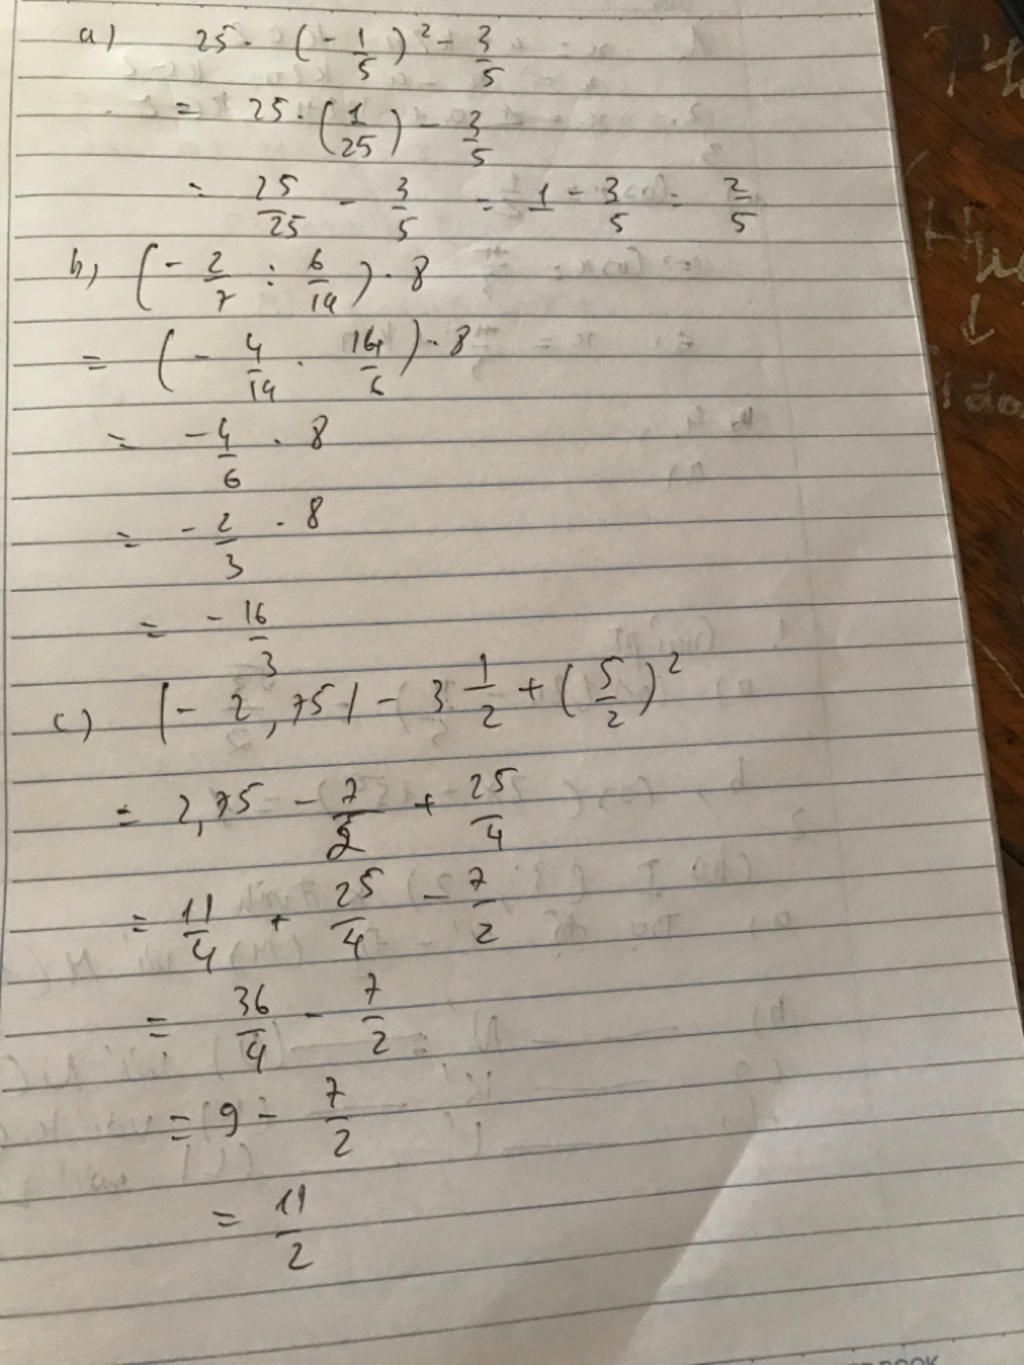 a) 25 · (-1/5)² - 3/5
= 25 · (1/25) - 3/5
= 25/25 - 3/5 = 1 - 3/5 = 2/5
b, (-2/7 : 6/14) · 8
= (-4/14 · 14/6) · 8
= -4/6 · 8
= -2/3 · 8
= -16/3
c) |-2,75| - 3 1/2 + (5/2)²
= 2,75 - 7/2 + 25/4
= 11/4 + 25/4 - 7/2
= 36/4 - 7/2
= 9 - 7/2
= 11/2